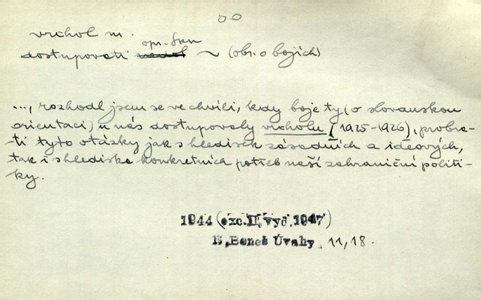 vrchol m.
dostupovati ~ (obr. o bojích)
..., rozhodl jsem se ve chvíli, kdy boje ty (o slovanskou
orientaci) u nás dostupovaly vrcholu [1925-1926), probra-
ti tyto otázky jak s hledisek zásadních a ideových,
tak i s hlediska konkretních potřeb naší zahraniční politi-
ky.
1944 (exc. II. vyd. 1947)
E. Beneš Úvahy 11, 18.